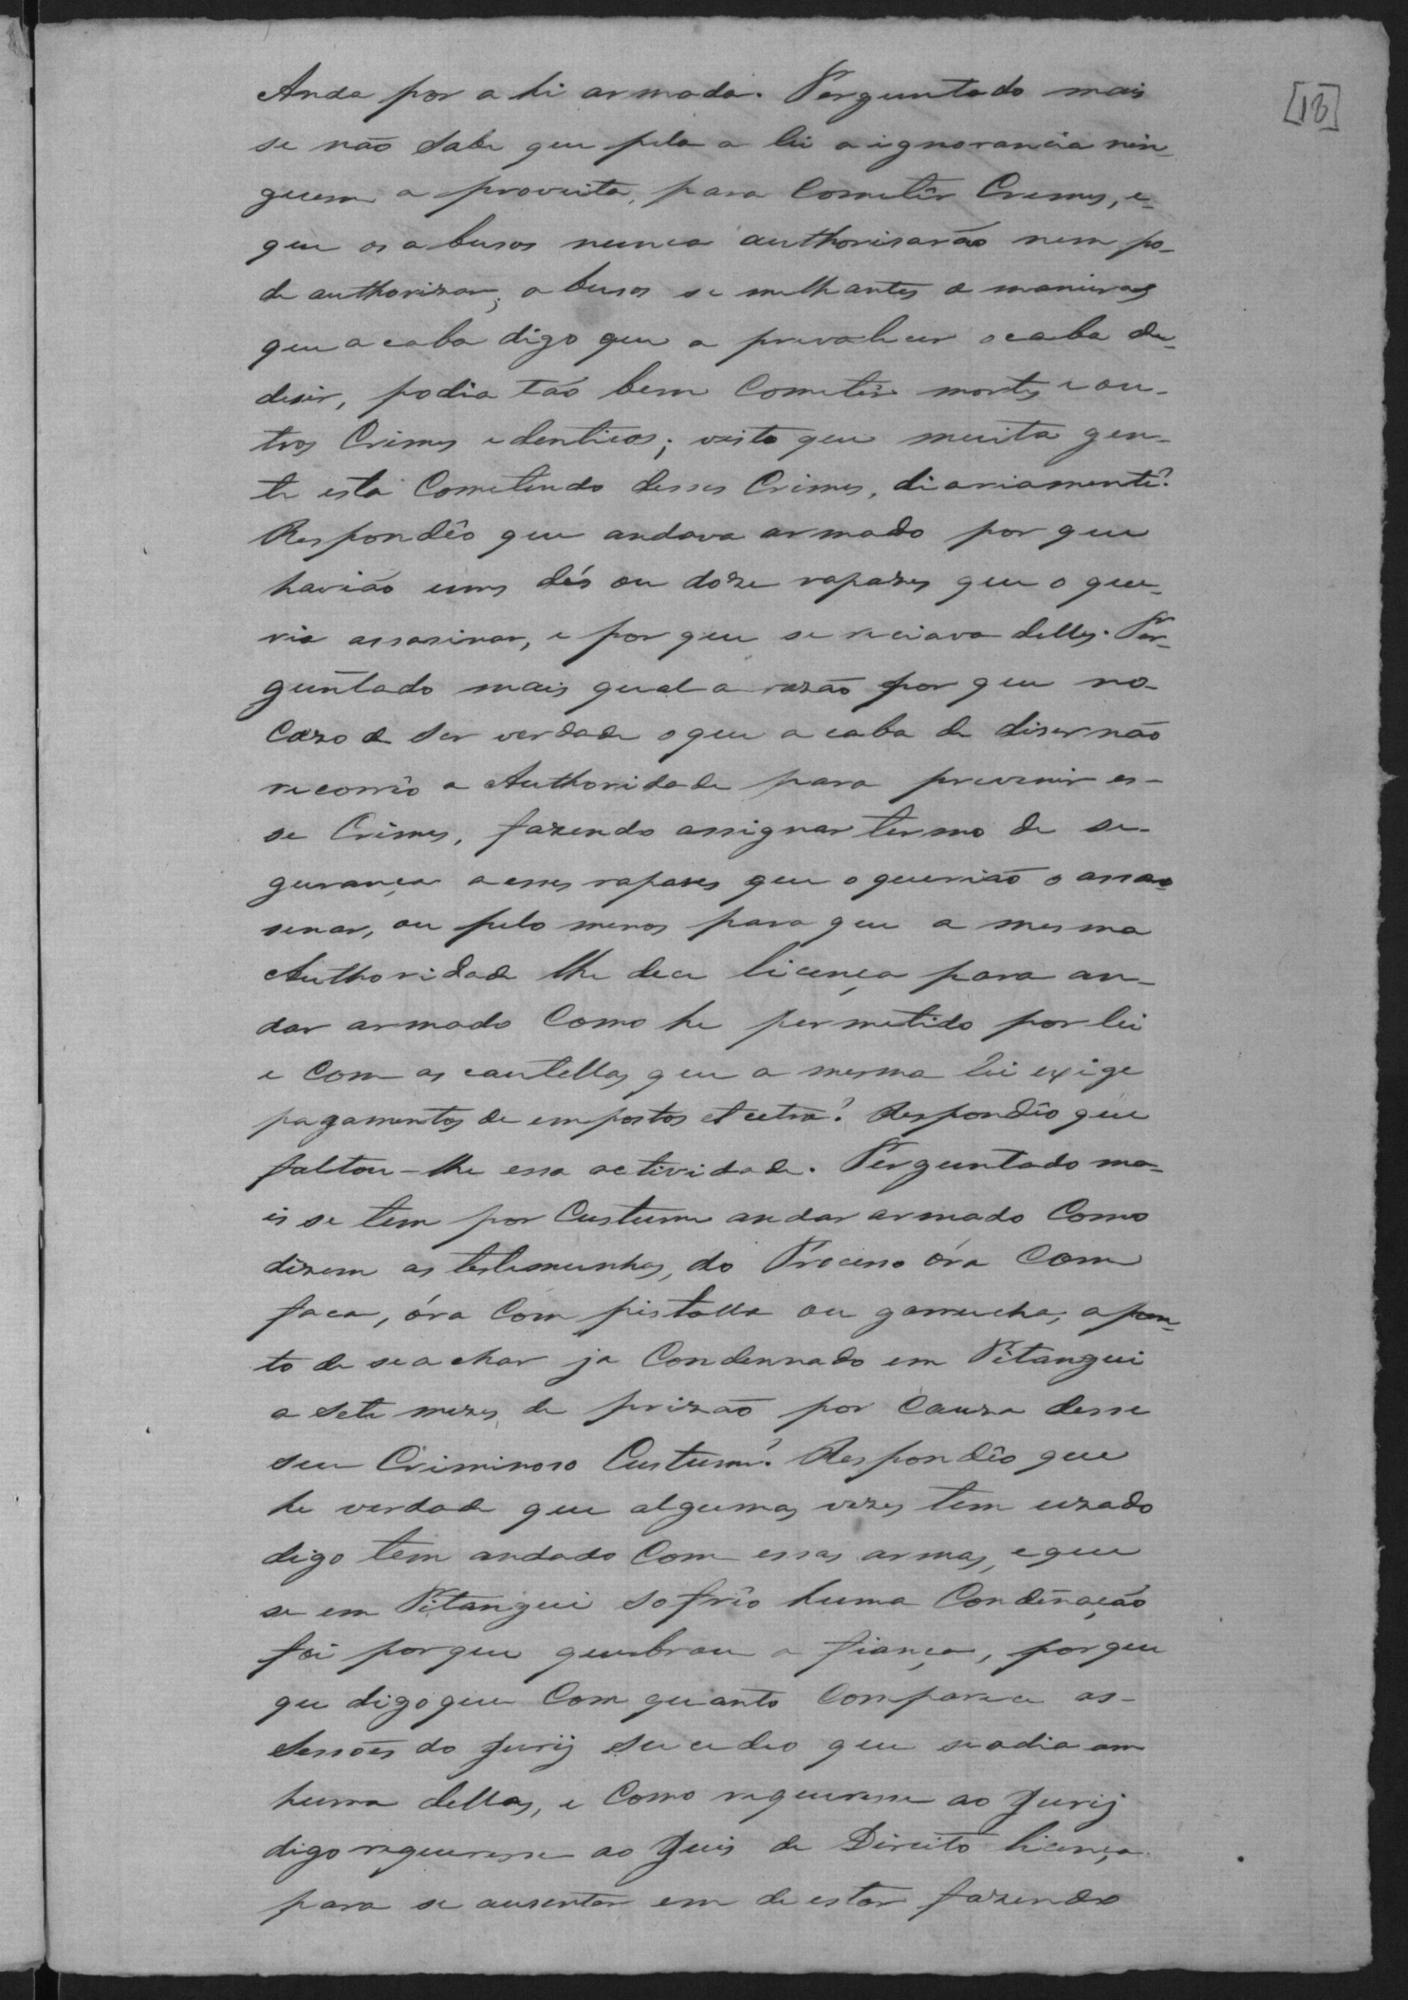 [18]
Anda por a hi armada. Perguntado mais
se não sabe que pela a lei a ignorancia nin-
guem a proveita, para Cometêr Cremes, e-
que os abusos nunca authorisarão nem po-
de authorizar, abusos se melhantes de maneira
que acaba digo que a prevalecer o caba de-
desir, podia tão bem Cometêr mortes e ou-
tros Crimes edenticos; visto que muita gen-
te está Cometendo desses Crimes, diariamente?
Respondêo que andava armado por que
havião uns dés ou doze rapazes que o que-
ria assasinar, e por que se reciava delles. Per-
guntado mais qual a razão por que no
Cazo de ser verdade o que acaba de diser não
recorrêo a Authoridade para previnir es-
se Crimes, fazendo assignar termo de se-
gurança a esses rapazes que o querião o assa-
senar, ou pelo menos para que a mesma
Authoridade lhe dece licença para an-
dar armado Como he permetido por lei
e Com as cautellas que a mesma lei exige
pagamentos de empostos et cetra? Respondêo que
faltou-lhe essa actividade. Perguntado ma-
is se tem por Custume andar armado Como
dizem as testemunhas, do Processo óra Com
faca, óra Com pistolla ou garrucha, a pon-
to de se a char ja Condennado em Pitangui
a sete mezes de prizão por Cauza desse
seu Criminoso Custume? Respondêo que
he verdade que algumas vezes tem uzado
digo tem andado Com essas armas, e que
se em Pitangui sofrêo huma Condenação
foi porque quebrou a fiança, porque
que digo que Com quanto Comparece as-
Sessões do Jurij sucedeo que se adia am
huma dellas, e Como requeresse ao Jurij
digo requeresse ao Juis de Direito licença
para se ausentar em de estar fazendo